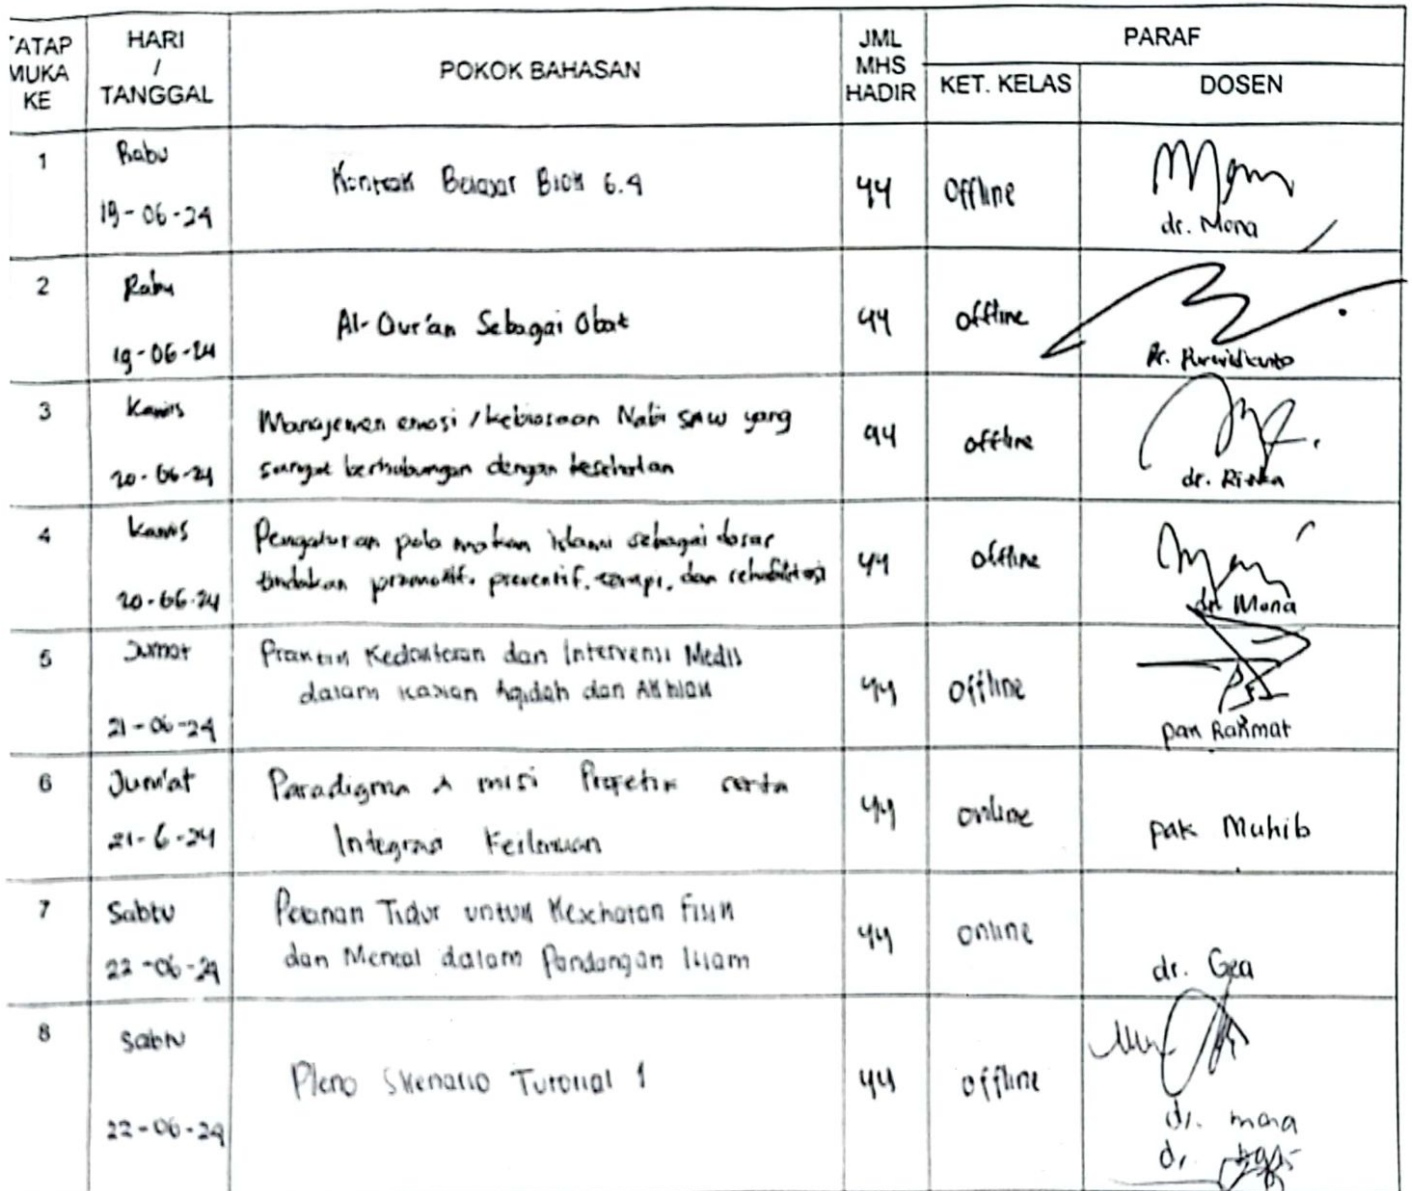 TATAP MUKA KE
HARI / TANGGAL
POKOK BAHASAN
JML MHS HADIR
PARAF
KET. KELAS
DOSEN
1
Rabu
19-06-24
Kontrak Belajar Blok 6.4
44
Offline
dr. Mona
2
Rabu
19-06-24
Al-Qur'an Sebagai Obat
44
offline
dr. Purwidianto
3
Kamis
20-06-24
Manajemen emosi / kebiasaan Nabi SAW yang
sangat berhubungan dengan kesehatan
44
offline
dr. Rizka
4
Kamis
20-06-24
Pengaturan pola makan islami sebagai dasar
tindakan promotif, preventif, terapi, dan rehabilitasi
44
offline
dr. Mona
5
Jumat
21-06-24
Praktik Kedokteran dan Intervensi Medis
dalam kajian Aqidah dan Akhlak
44
Offline
pak Rahmat
6
Jum'at
21-6-24
Paradigma & misi Profetik serta
Integrasi Keilmuan
44
online
pak Muhib
7
Sabtu
22-06-24
Peranan Tidur untuk Kesehatan Fisik
dan Mental dalam Pandangan Islam
44
online
dr. Gea
8
Sabtu
22-06-24
Pleno Skenario Tutorial 1
44
offline
dr. mona
dr.